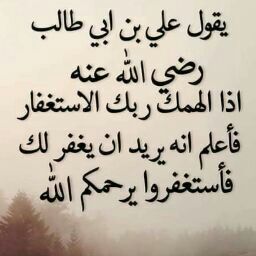 يقول علي بن ابي طالب
رضي الله عنه
اذا الهمك ربك الاستغفار
فأعلم انه يريد ان يغفر لك
فأستغفروا يرحمكم الله